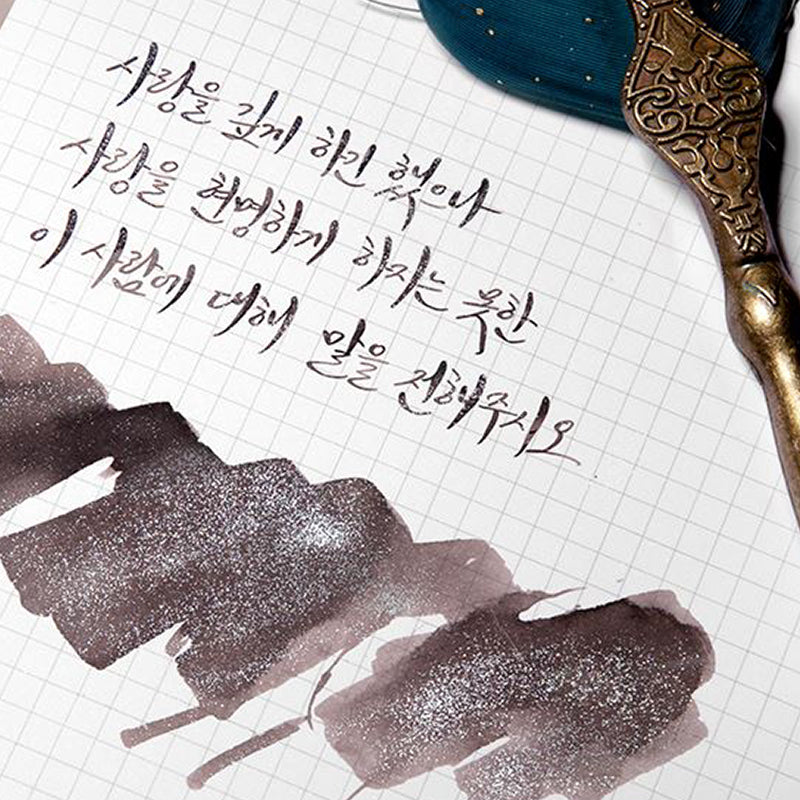 사랑을 깊게 하긴 했으나
사랑을 현명하게 하지는 못한
이 사람에 대해 말을 전해주시오